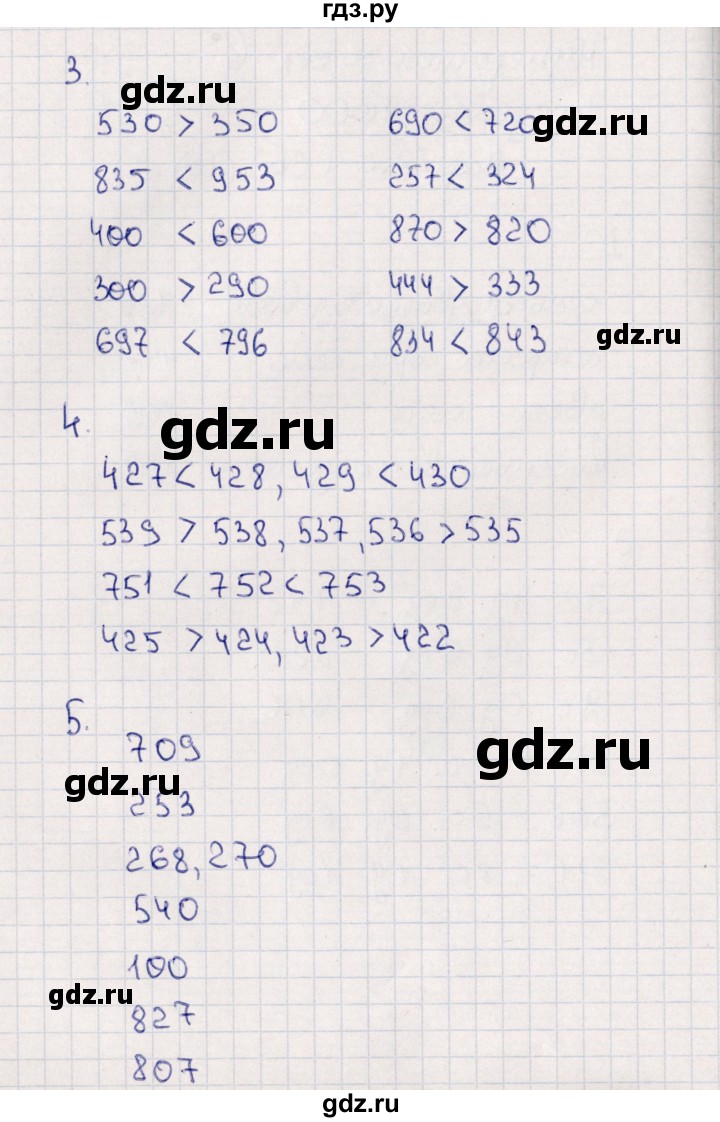 гдз.ру
3.
gdz.ru
530 > 350 690 < 720
gdz.ru
835 < 953 257 < 324
400 < 600 870 > 820
300 > 290 444 > 333
697 < 796 834 < 843
gdz.ru
4.
gdz.ru
427 < 428, 429 < 430
539 > 538, 537, 536 > 535
751 < 752 < 753
425 > 424, 423 > 422
5.
709
gdz.ru
gdz.ru
253
268, 270
540
100
gdz.ru
827
807
gdz.ru